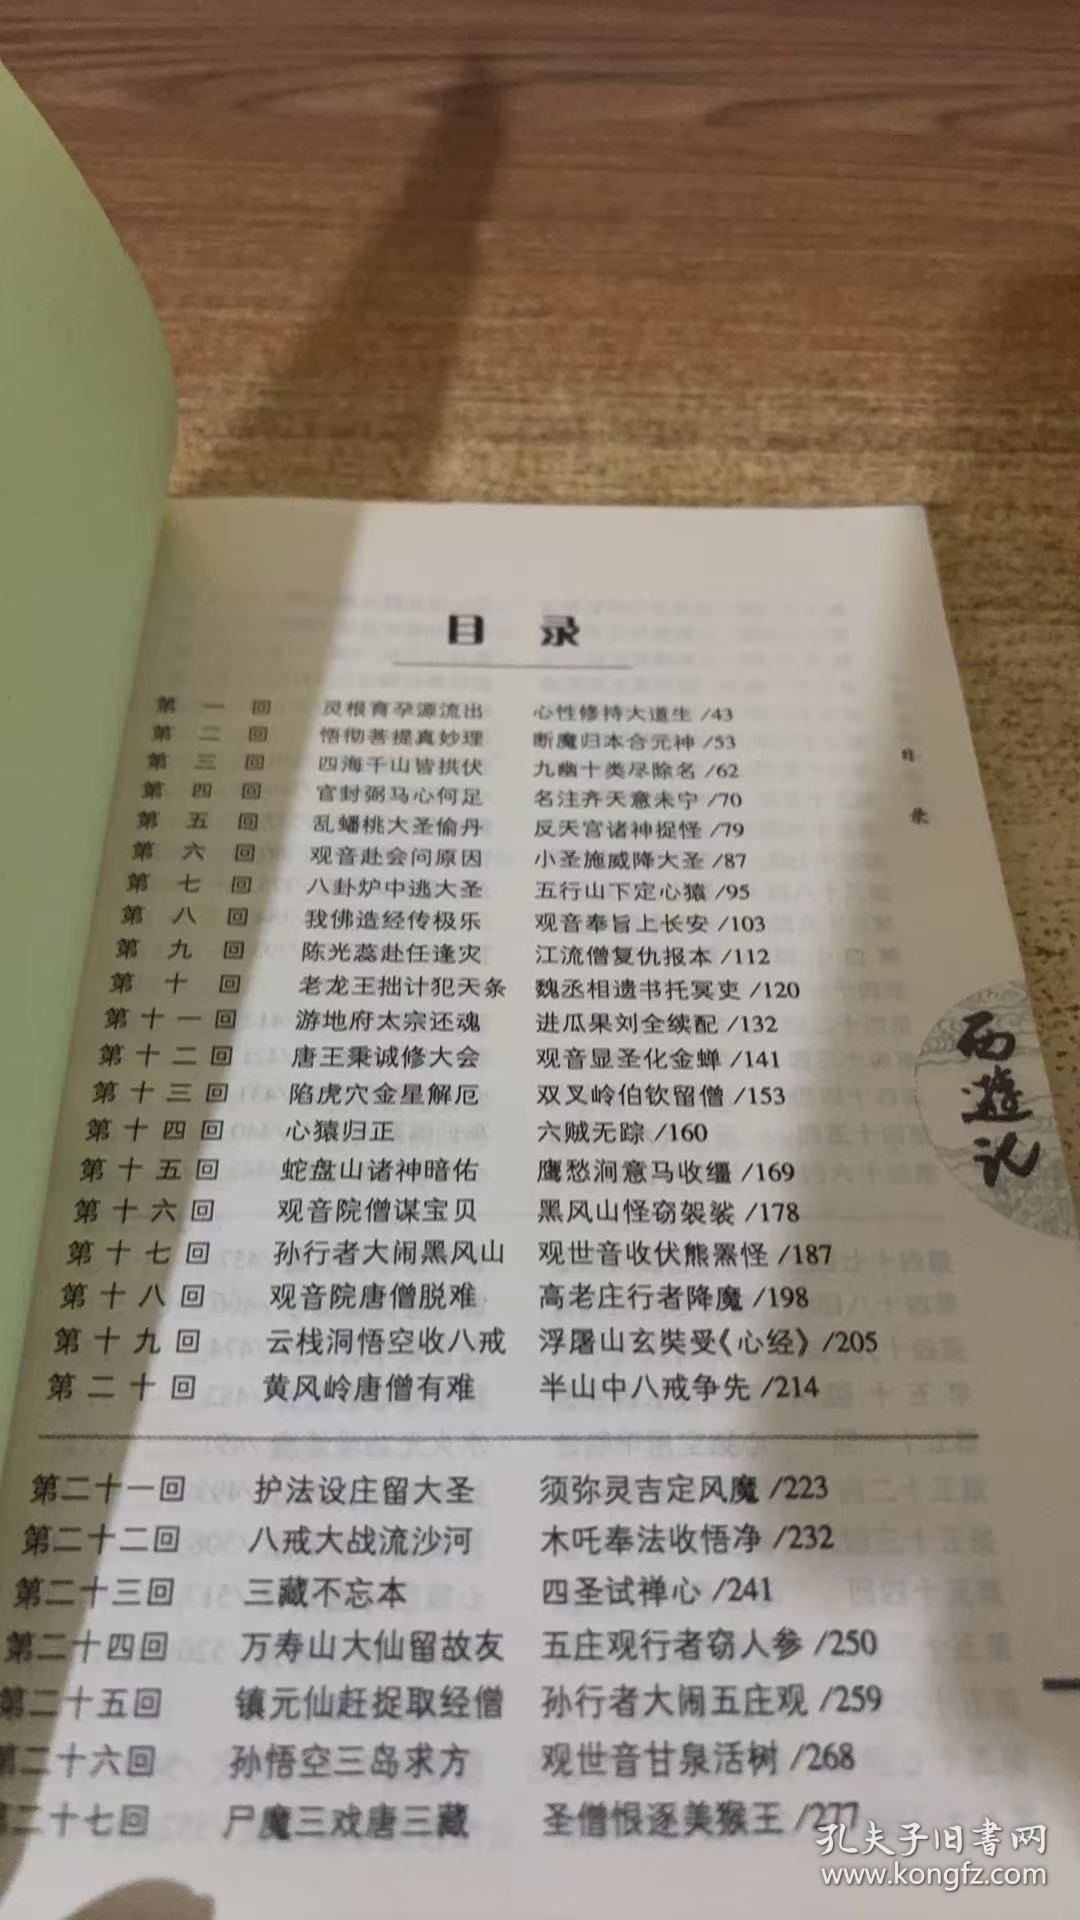 目 录
第一回 灵根育孕源流出 心性修持大道生 /43
第二回 悟彻菩提真妙理 断魔归本合元神 /53
第三回 四海千山皆拱伏 九幽十类尽除名 /62
第四回 官封弼马心何足 名注齐天意未宁 /70
第五回 乱蟠桃大圣偷丹 反天宫诸神捉怪 /79
第六回 观音赴会问原因 小圣施威降大圣 /87
第七回 八卦炉中逃大圣 五行山下定心猿 /95
第八回 我佛造经传极乐 观音奉旨上长安 /103
第九回 陈光蕊赴任逢灾 江流僧复仇报本 /112
第十回 老龙王拙计犯天条 魏丞相遗书托冥吏 /120
第十一回 游地府太宗还魂 进瓜果刘全续配 /132
第十二回 唐王秉诚修大会 观音显圣化金蝉 /141
第十三回 陷虎穴金星解厄 双叉岭伯钦留僧 /153
第十四回 心猿归正 六贼无踪 /160
第十五回 蛇盘山诸神暗佑 鹰愁涧意马收缰 /169
第十六回 观音院僧谋宝贝 黑风山怪窃袈裟 /178
第十七回 孙行者大闹黑风山 观世音收伏熊罴怪 /187
第十八回 观音院唐僧脱难 高老庄行者降魔 /198
第十九回 云栈洞悟空收八戒 浮屠山玄奘受《心经》 /205
第二十回 黄风岭唐僧有难 半山中八戒争先 /214
第二十一回 护法设庄留大圣 须弥灵吉定风魔 /223
第二十二回 八戒大战流沙河 木吒奉法收悟净 /232
第二十三回 三藏不忘本 四圣试禅心 /241
第二十四回 万寿山大仙留故友 五庄观行者窃人参 /250
第二十五回 镇元仙赶捉取经僧 孙行者大闹五庄观 /259
第二十六回 孙悟空三岛求方 观世音甘泉活树 /268
第二十七回 尸魔三戏唐三藏 圣僧恨逐美猴王 /277
目录
西遊记
孔夫子旧书网
www.kongfz.com